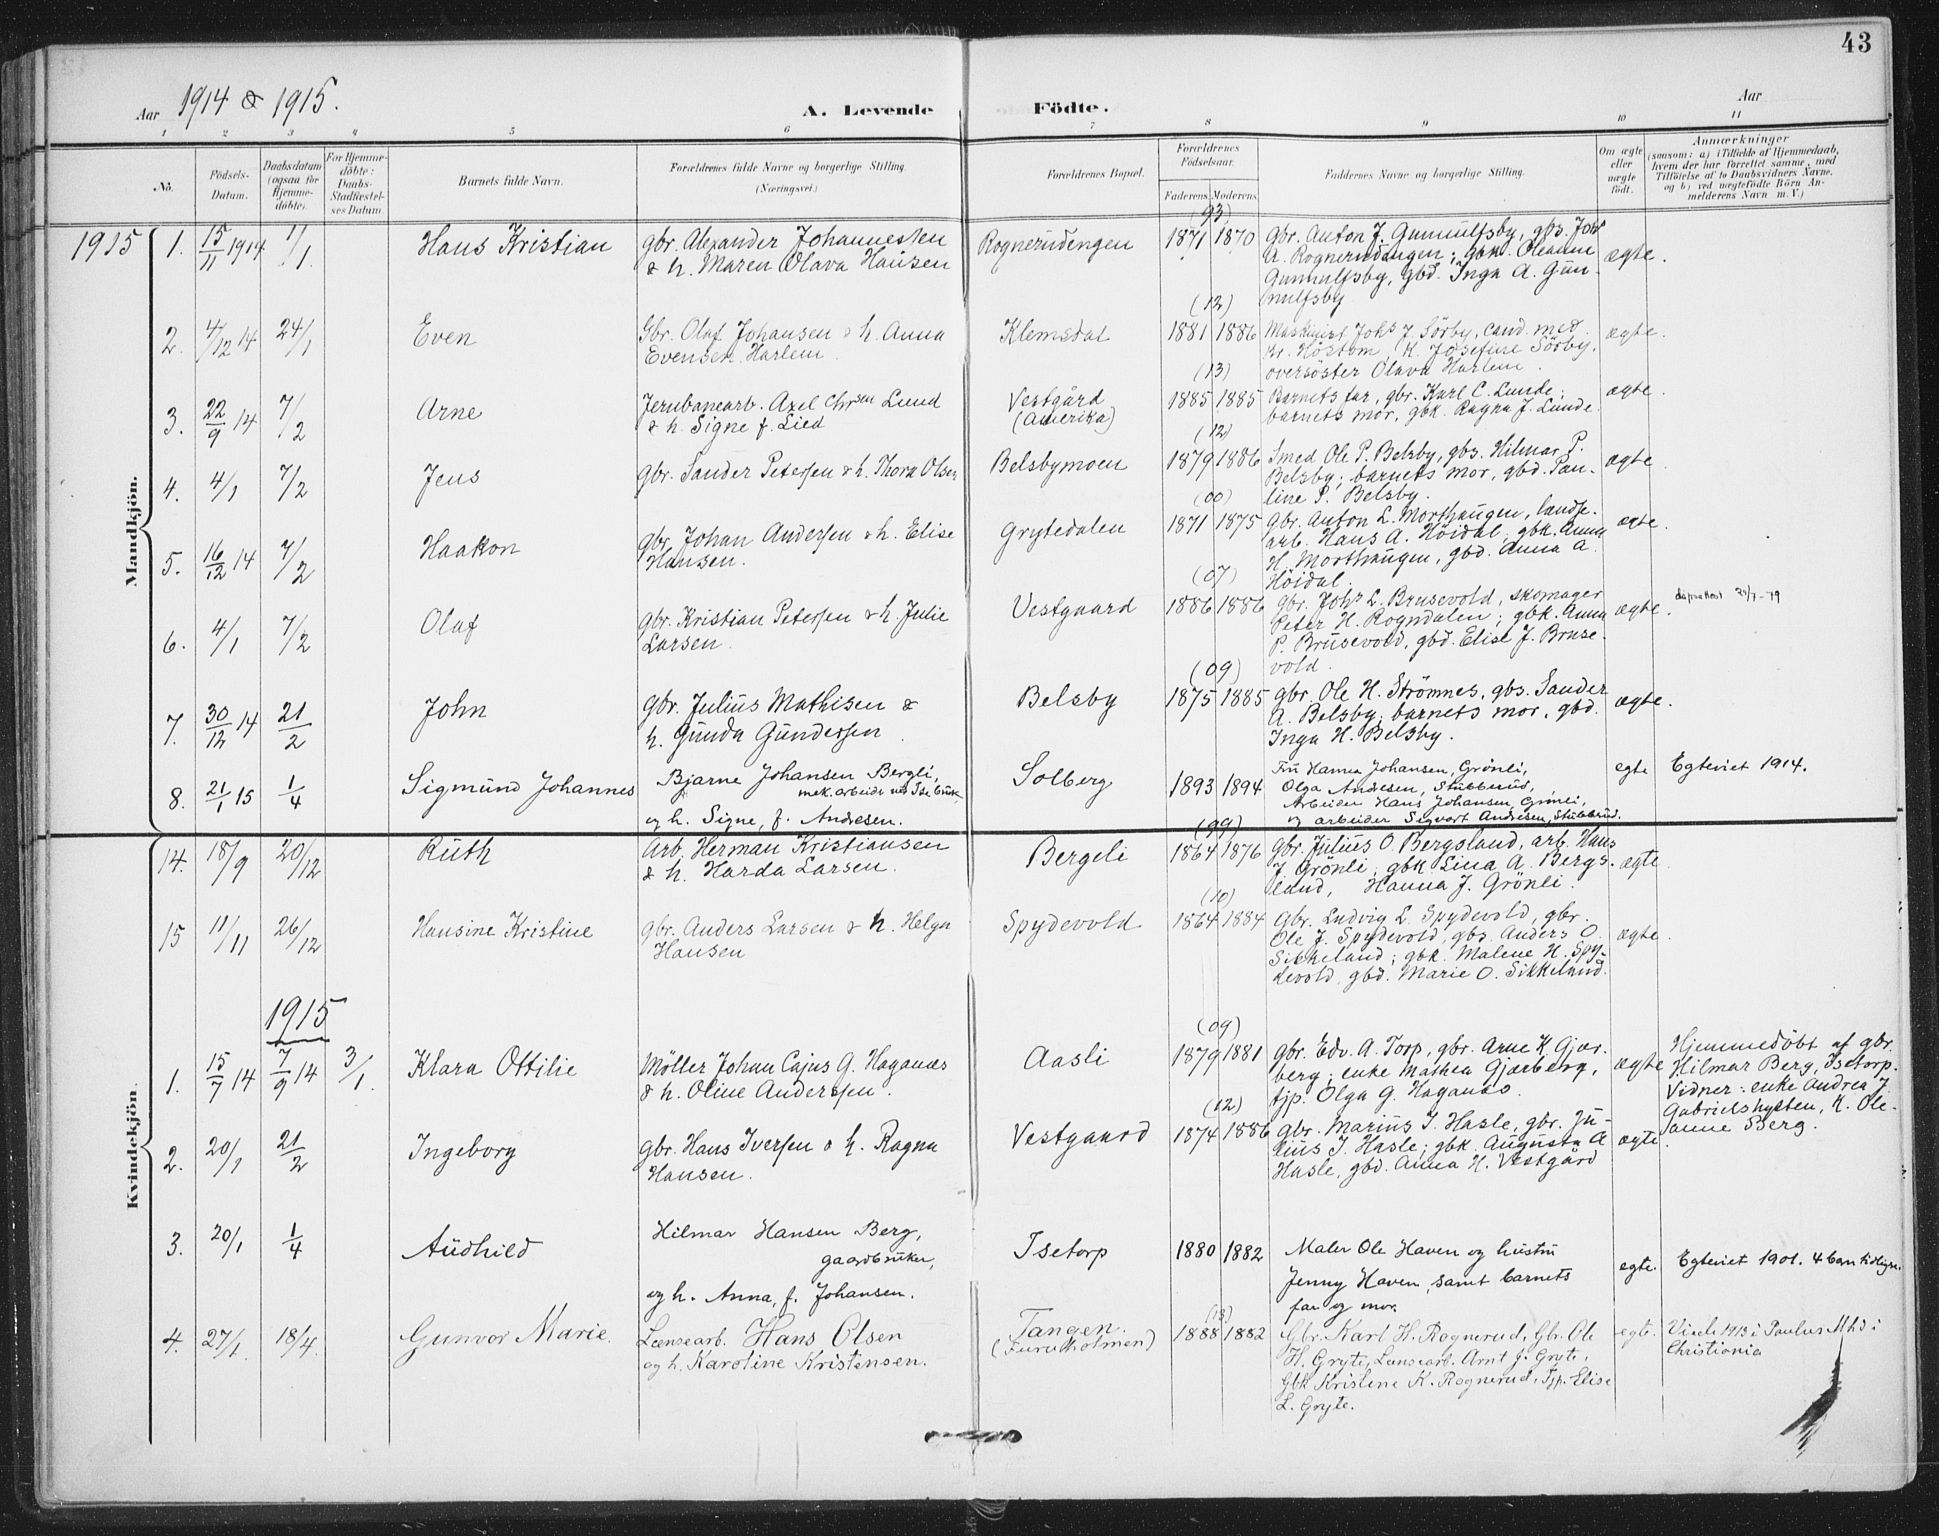 43
Aar 1914 & 1915.
A. Levende Födte.
Aar
1 2 3 4 5 6 7 8 9 10 11
No.
Födsels-Datum.
Daabsdatum (ogsaa for Hjemme-döbte).
For Hjemme-döbte: Daabs-Stadfæstel-ses Datum
Barnets fulde Navn.
Forældrenes fulde Navne og borgerlige Stilling. (Næringsvei.)
Forældrenes Bopæl.
Forældrenes Födselsaar.
Faderens Moderens
Faddernes Navne og borgerlige Stilling.
Om ægte eller uægte födt.
Anmærkninger
(saasom: a) i Tilfælde af Hjemmedaab,
hvem der har forrettet samme, med
Tilföielse af to Daabsvidners Navne,
og b) ved uægtefödte Börn An-
melderens Navn m. V.)
Mandkjön.
1915 1. 15/11 1914 1/1. Hans Kristian
gbr. Alexander Johannessen
& h. Maren Olava Hansen
Rognerudengen (93) 1871 1870
gbr. Anton J. Gunnulfsby, gbs. Johs
A. Rognerudengen; gbk. Oleanne
Gunnulfsby, gbd. Inga A. Gun-
nulfsby
ægte.
2. 4/12 14 24/1 Even
Gbr. Olaf Johansen & h. Anna
Evensen Harlem.
Klemsdal (12) 1881 1886
Maskinist Johs J. Sörby, cand. med.
Kr. Höstom, K. Josefine Sörby,
oversöster Olava Harlem.
ægte.
3. 22/9 14 7/2 Arne
Jernbanearb. Axel Chrsen Lund
& h. Signe f. Lied
Vestgård
(Amerika)
(13) 1885 1885
Barnets far, gbr. Karl C. Lunde;
barnets mor, gbk. Ragna J. Lunde.
ægte.
4. 4/1 7/2 Jens
gbr. Sander Petersen & h. Thora Olsen
Belsbymoen (12) 1879 1886
Smed Ole P. Belsby, gbs. Hilmar P.
Belsby; barnets mor, gbd. Pau-
line P. Belsby.
ægte
5. 16/12 14 7/2 Haakon
gbr. Johan Andersen & h. Elise
Hansen.
Grytedalen (00) 1871 1875
gbr. Anton L. Morthaugen, landv.
arb. Hans A. Höidal; gbk. Anna
H. Morthaugen, gbd. Anna A.
Höidal.
ægte.
6. 4/1 7/2 Olaf
gbr. Kristian Petersen & h. Julie
Larsen.
Vestgaard (07) 1886 1886
gbr. Johs L. Brusevold, skomager
Peter H. Rogndalen; gbk. Anna
P. Brusevold, gbd. Elise J. Bruse-
vold.
ægte.
7. 30/12 14 21/2 John
gbr. Julius Mathisen &
h. Gunda Gundersen.
Belsby (09) 1875 1885
gbr. Ole H. Strömnes, gbs. Sander
A. Belsby; barnets mor, gbd.
Inga H. Belsby.
ægte.
8. 21/1 15 1/4 Sigmund Johannes
Bjarne Johansen Bergli,
mek. arbeider ved Ise bruk,
og h. Signe, f. Andresen.
Solberg 1893 1894
Fru Hanna Johansen, Grönli,
Olga Andresen, Stubberud,
Arbeider Hans Johansen, Grönli,
og arbeider Sigvart Andresen, Stubberud.
egte Egteviet 1914.
Kvindekjön
14. 18/9 20/12 Ruth
Arb. Herman Kristiansen
& h. Harda Larsen.
Bergeli (99) 1864 1876
gbr. Julius O. Bergsland, arb. Hans
J. Grönli, gbk Lina A. Bergs-
land, Hanna J. Grönli.
ægte.
15 11/11 26/12 Hansine Kristine
gbr. Anders Larsen & h. Helga
Hansen
Spydevold (10) 1864 1884
Gbr. Ludvig L. Spydevold, gbr.
Ole J. Spydevold, gbs. Anders O.
Sikkeland; gbk. Malene H. Spy-
devold, gbd. Marie O. Sikkeland.
ægte.
1915
1. 15/7 14 7/9 14 3/1. Klara Ottilie
Möller Johan Cajus G. Haganæs
& h. Oline Andersen.
Aasli (09) 1879 1881
gbr. Edv. A. Torp, gbr. Arne K. Gjær-
berg; enke Mathea Gjærberg,
tjp. Olga G. Haganæs.
ægte
Hjemmedöbt af gbr.
Hilmar Berg, Isetorp.
Vidner: enke Andrea J.
Gabrielshytten, K. Ole-
anne Berg.
2. 20/1 21/2 Ingeborg
gbr. Hans Iversen & h. Ragna
Hansen.
Vestgaard (12) 1874 1886
gbr. Marius I. Hasle, gbr. Ju-
lius I. Hasle; gbk. Augusta A.
Hasle, gbd. Anna H. Vestgård
ægte.
3. 20/1 1/4 Audhild
Hilmar Hansen Berg,
gaardbruker,
og h. Anna, f. Johansen.
Isetorp 1880 1882
Maler Ole Haven og hustru
Jenny Haven, samt barnets
far og mor.
egte. Egteviet 1901. 4 barn tidligere.
4. 27/1. 18/4. Gunvor Marie.
Lænsearb. Hans Olsen
og h. Karoline Kristensen.
Tangen.
(Furuholmen)
(13) 1888 1882
Gbr. Karl H. Rognerud, Gbr. Ole
H. Gryte, Lænsearb. Arnt J. Gryte,
Gbk Kristene K. Rognerud, Tjp. Elise
L. Gryte.
egte. Viede 1913 i Paulus Mhd i
Christiania